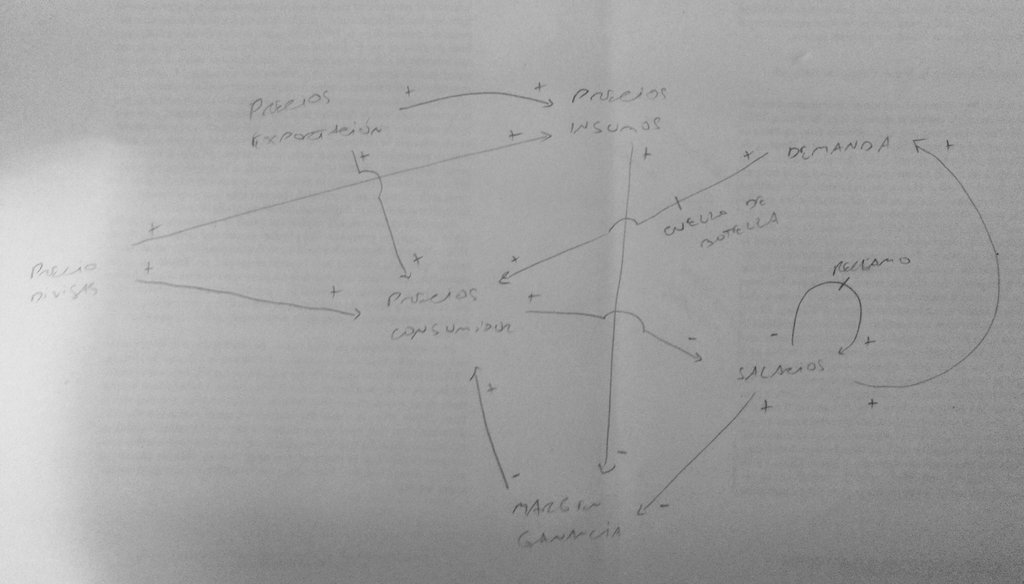 PRECIOS
EXPORTACIÓN
+
+
PRECIOS
INSUMOS
+
+
+
+
DEMANDA
+
+
CUELLO DE
BOTELLA
PRECIO
DIVISAS
+
+
+
+
+
PRECIOS
CONSUMIDOR
+
-
RECLAMO
-
+
SALARIOS
+
+
+
-
-
-
MARGEN
GANANCIA